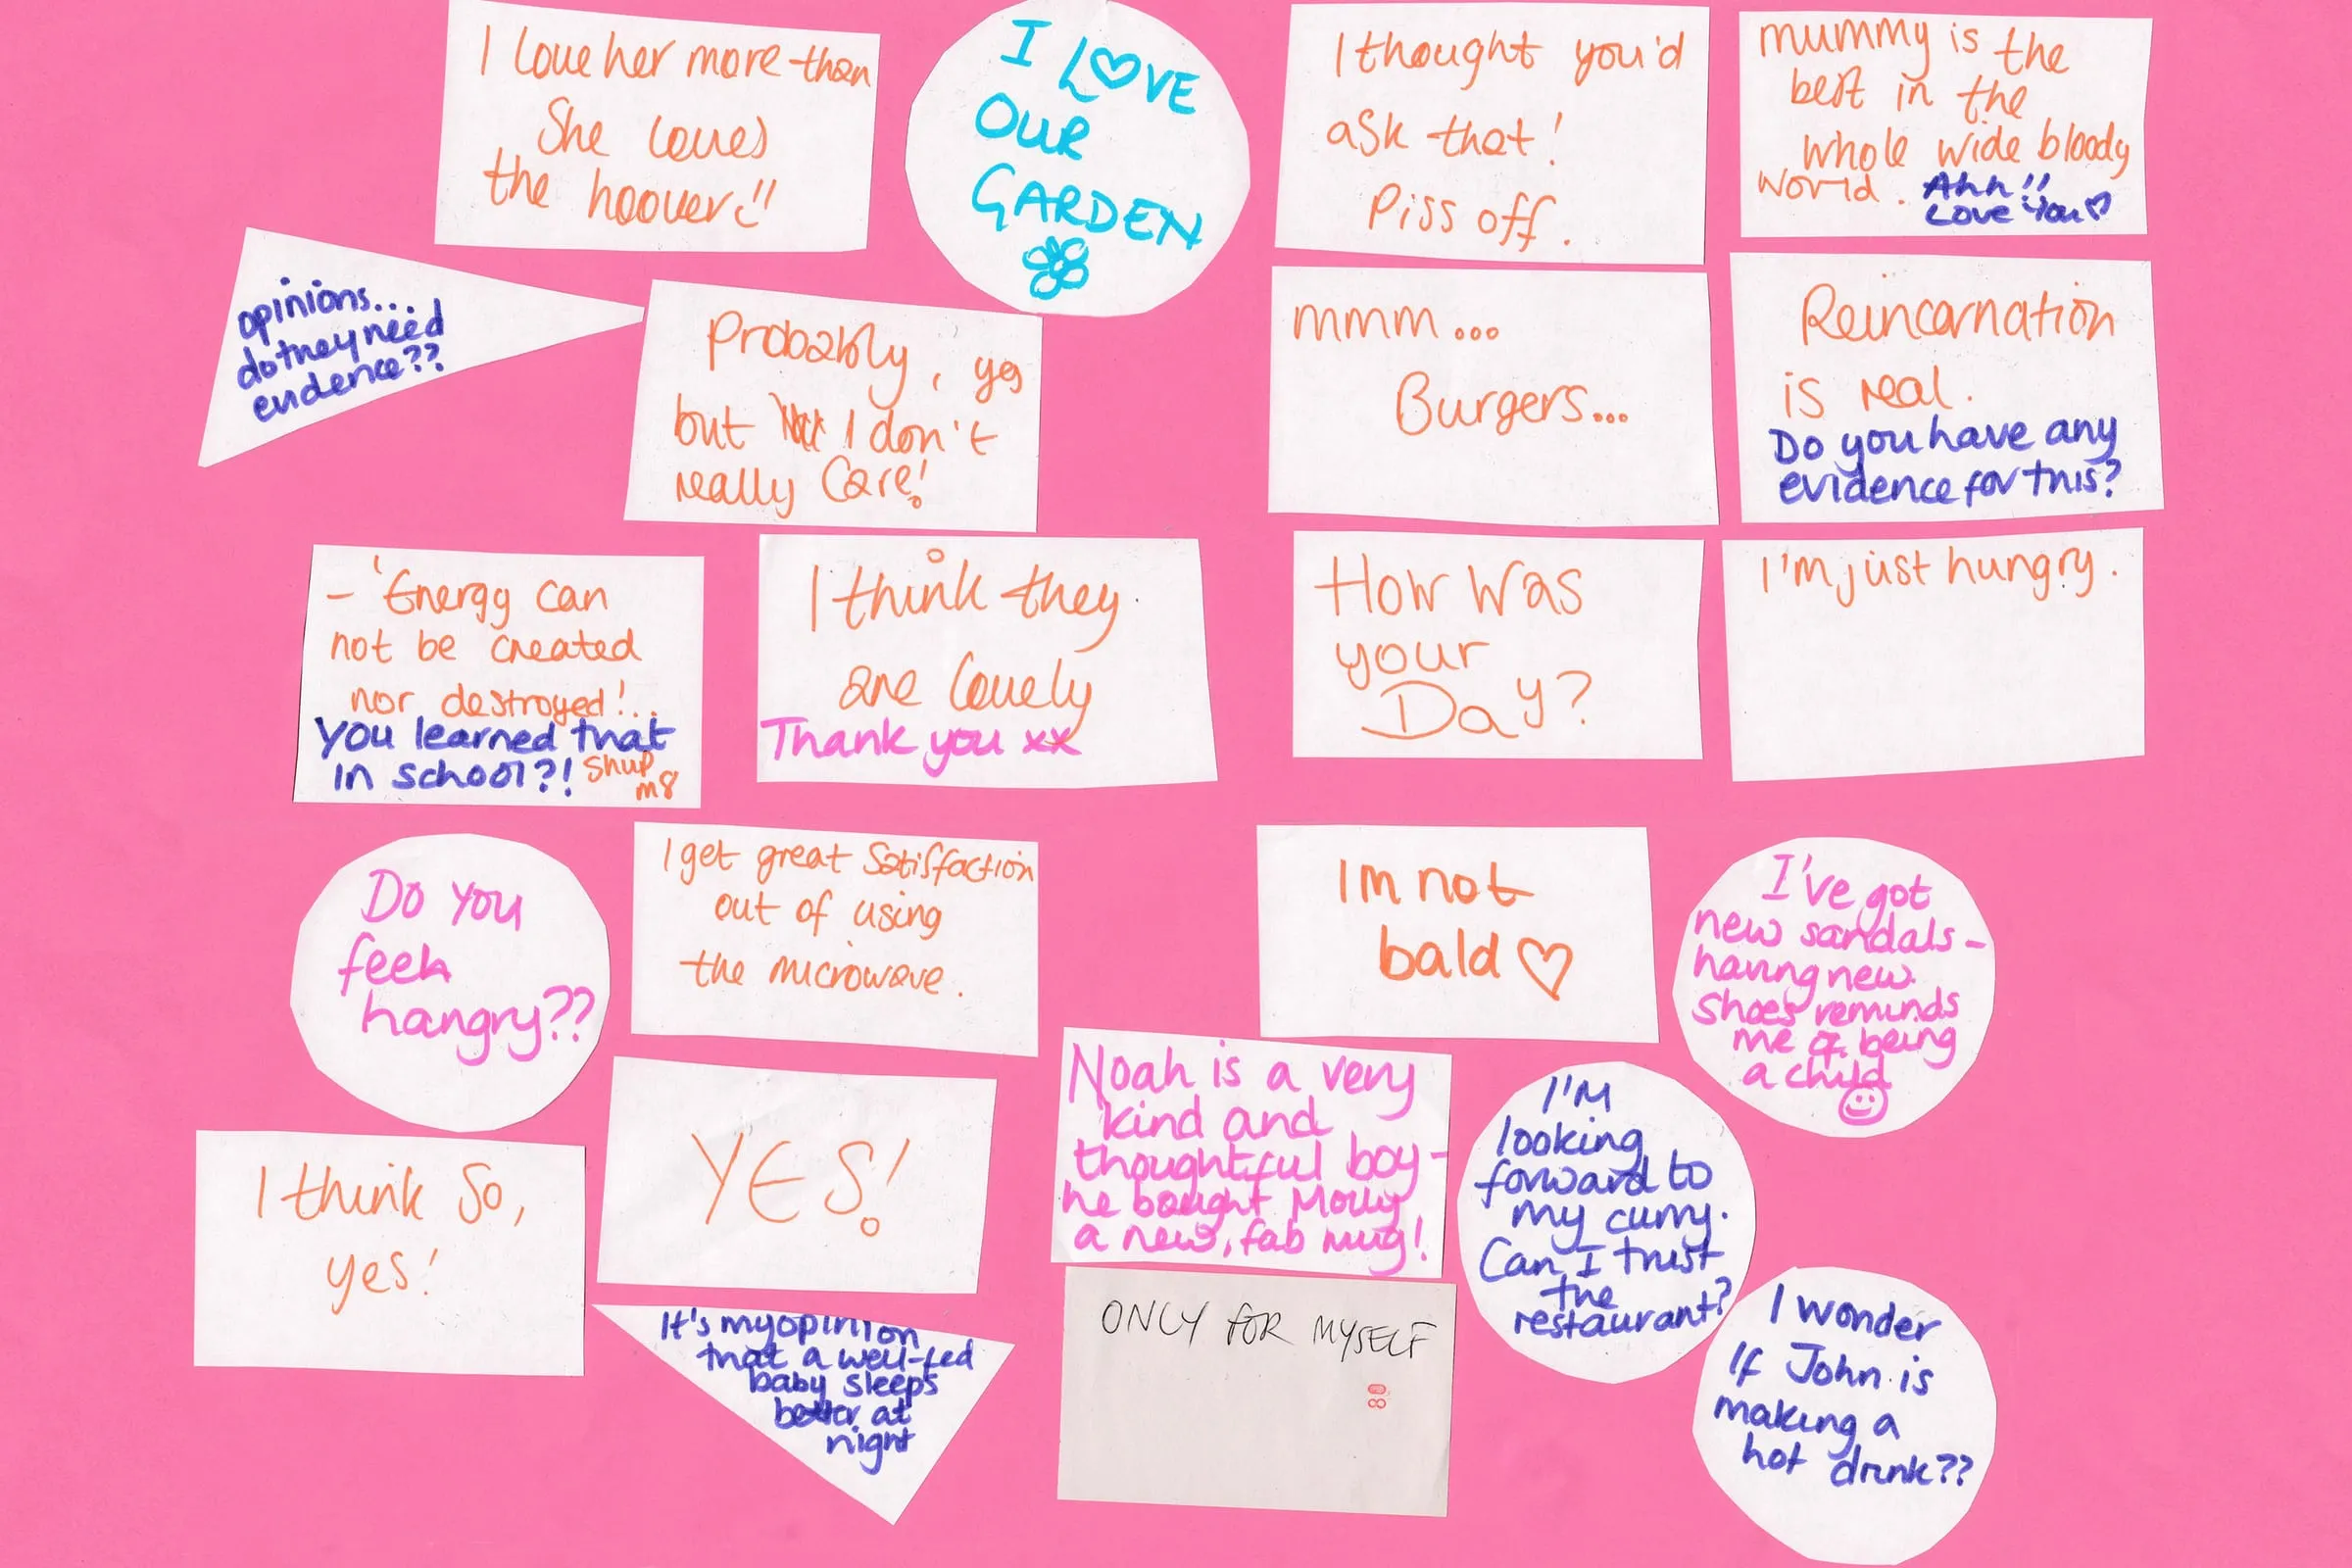 I love her more than
She loves
the hoover!!
I LOVE
OUR
GARDEN
I thought you'd
ask that!
Piss off.
mummy is the
best in the
whole wide bloody
world. Ahh!!
Love You
opinions...
do they need
evidence??
Probably, yes
but I don't
really Care!
mmm...
Burgers...
Reincarnation
is real.
Do you have any
evidence for this?
- 'Energy can
not be created
nor destroyed!..
You learned that
in school?! Shup
m8
I think they
are lovely
Thank you xx
How Was
your
Day?
I'm just hungry.
Do You
feel
hangry??
I get great Satisfaction
out of using
the microwave.
Im not
bald ♡
I've got
new sandals -
having new
shoes reminds
me of being
a child
I think So,
yes!
YES!
Noah is a very
kind and
thoughtful boy -
he bought Molly
a new, fab mug!
I'M
looking
forward to
my curry.
Can I trust
the
restaurant?
It's my opinion
that a well-fed
baby sleeps
better at
night
ONLY FOR MYSELF
I wonder
If John is
making a
hot drink??